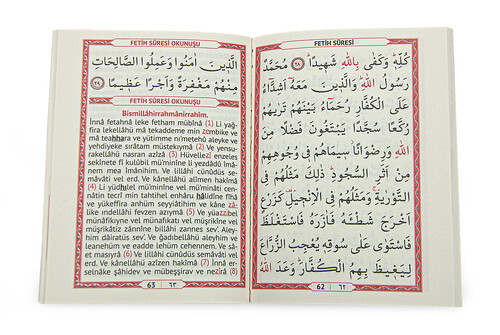 FETİH SÛRESİ
كُلِّهِ وَكَفٰى بِاللّٰهِ شَهٖيدًا ﴿٢٨﴾ مُحَمَّدٌ
رَسُولُ اللّٰهِ وَالَّذٖينَ مَعَهُٓ اَشِدَّٓاءُ
عَلَى الْكُفَّارِ رُحَمَٓاءُ بَيْنَهُمْ تَرٰيهُمْ
رُكَّعًا سُجَّدًا يَبْتَغُونَ فَضْلًا مِنَ
اللّٰهِ وَرِضْوَانًا سٖيمَاهُمْ فٖي وُجُوهِهِمْ
مِنْ اَثَرِ السُّجُودِ ذٰلِكَ مَثَلُهُمْ فِي
التَّوْرٰيةِ وَمَثَلُهُمْ فِي الْاِنْجٖيلِ كَزَرْعٍ
اَخْرَجَ شَطْئَهُ فَاٰزَرَهُ فَاسْتَغْلَظَ
فَاسْتَوٰى عَلٰى سُوقِهٖ يُعْجِبُ الزُّرَّاعَ
لِيَغٖيظَ بِهِمُ الْكُفَّارَ وَعَدَ اللّٰهُ
62 ٦٢
FETİH SÛRESİ OKUNUŞU
الَّذٖينَ اٰمَنُوا وَعَمِلُوا الصَّالِحَاتِ
مِنْهُمْ مَغْفِرَةً وَاَجْرًا عَظٖيمًا ﴿٢٩﴾
FETİH SÛRESİ OKUNUŞU
Bismillâhirrahmânirrahîm.
İnnâ fetahnâ leke fetham mübînâ (1) Li yağ-
fira lekellâhü mâ tekaddeme min zembike ve
mâ teahhara ve yütimme ni'metehû aleyke ve
yehdiyeke sırâtam müstekıymâ (2) Ve yensu-
rakellâhü nasran azîzâ (3) Hüvellezî enzeles
sekînete fî kulûbil mü'minîne li yezdâdû îmâ-
nem mea îmânihim. Ve lillâhi cünûdüs semâ-
vâti vel erd. Ve kânellâhü alîmen hakîmâ
(4) Li yüdhılel mü'minîne vel mü'minâti cen-
nâtin tecrî min tahtihel enhâru hâlidîne fîhâ
ve yükeffira anhüm seyyiâtihim ve kâne zâ-
like ındellâhi fevzen azıymâ (5) Ve yüazzibel
münâfikıyne vel münâfikâti vel müşrikîne vel
müşrikâtiz zânnîne billâhi zannes sev'. Aley-
him dâiratüs sev'. Ve ğadıbellâhü aleyhim ve
leanehüm ve eadde lehüm cehennem. Ve sâ-
et masıyrâ (6) Ve lillâhi cünûdüs semâvâti vel
erd. Ve kânellâhü azîzen hakîmâ (7) İnnâ er-
selnâke şâhidev ve mübeşşirav ve nezîrâ (8)
63 ٦٣